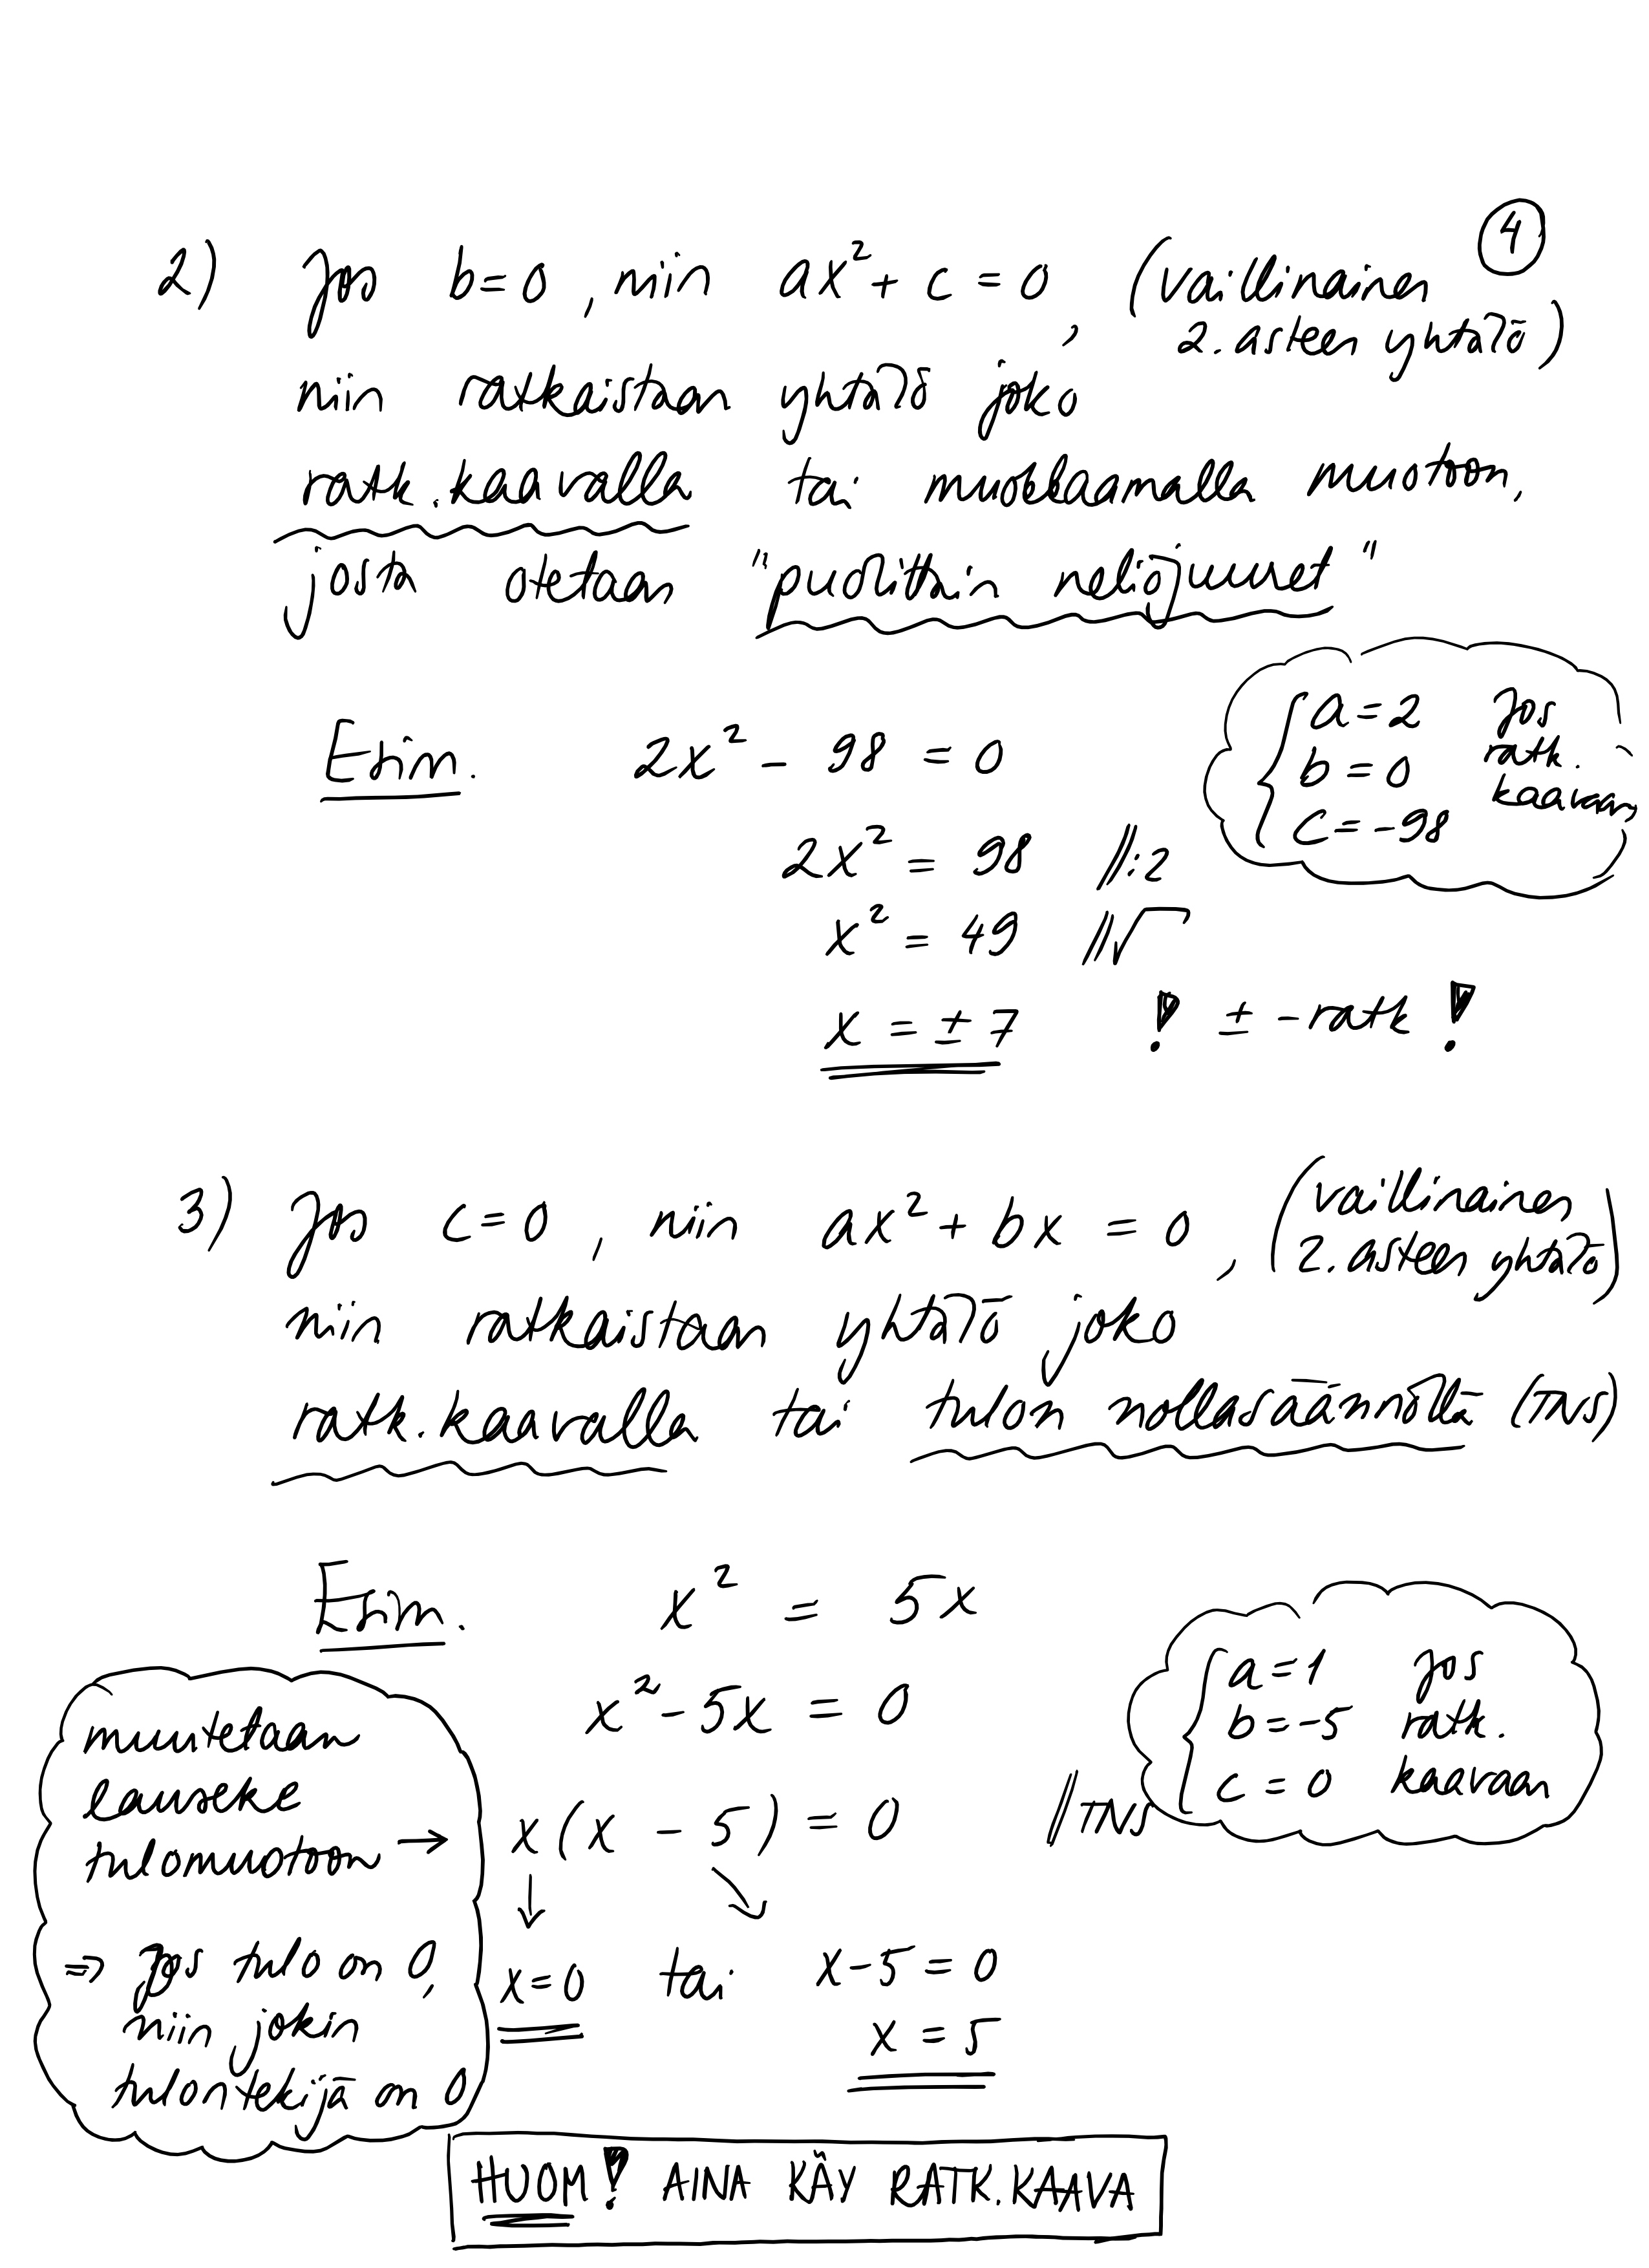 4
2) Jos b=0, niin ax²+ c = 0, (vaillinainen
2. asteen yhtälö)
niin ratkaistaan yhtälö joko
ratk.kaavalla tai muokkaamalla muotoon,
josta otetaan "puolittain neliöjuuret"
a=2 Jos
b=0 ratk.
c=-98 kaavaan
Esim. 2x² - 98 = 0
2x² = 98 //:2
x² = 49 //√
x = ±7 ! ± -ratk !
3) Jos c=0, niin ax² + bx = 0, (vaillinainen
2. asteen yhtälö)
niin ratkaistaan yhtälö joko
ratk.kaavalla tai tulon nollasäännöllä (TNS)
Esim. x² = 5x
x² - 5x = 0
a=1 jos
b=-5 ratk.
c=0 kaavaan
muutetaan
lauseke
tulomuotoon →
x(x - 5) = 0 //TNS
↓ ↘
⇒ Jos tulo on 0,
niin jokin
tulontekijä on 0
x=0 tai x-5=0
x = 5
HUOM! AINA KÄY RATK.KAAVA